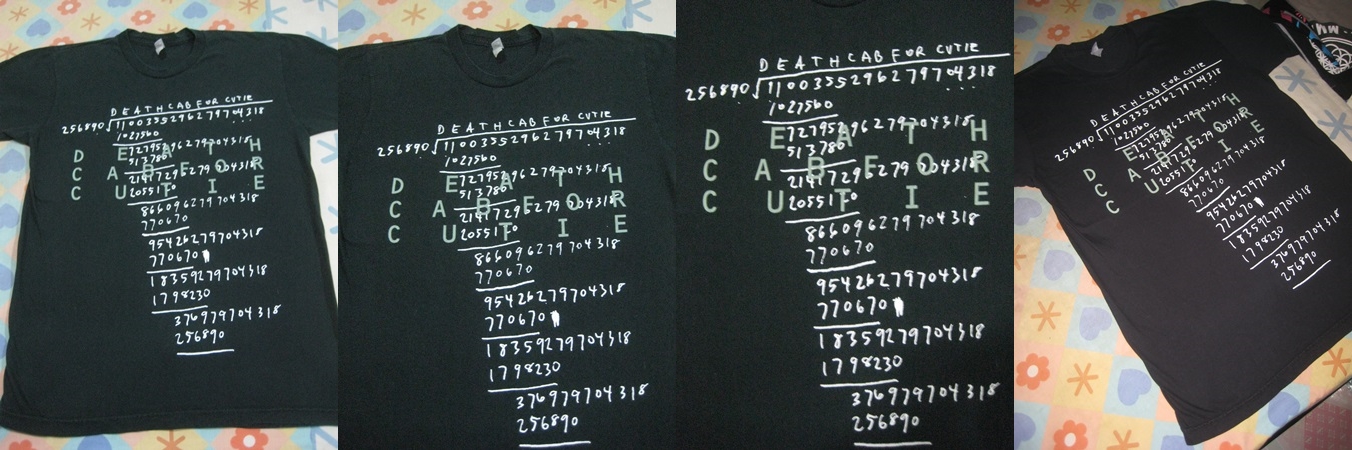 DEATHCABFOR CUTIE
256890 √1100355296279704318
1027560
72795296279704318
513780
21417296279704318
2055120
866096279704318
770670
95426279704318
770670
18359279704318
1798230
376979704318
256890
D E A T H
C A B F O R
C U T I E
DEATHCABFOR CUTIE
256890 √1100355296279704318
1027560
72795296279704318
513780
21417296279704318
2055120
866096279704318
770670
95426279704318
770670
18359279704318
1798230
376979704318
256890
D E A T H
C A B F O R
C U T I E
DEATHCABFOR CUTIE
256890 √1100355296279704318
1027560
72795296279704318
513780
21417296279704318
2055120
866096279704318
770670
95426279704318
770670
18359279704318
1798230
376979704318
256890
D E A T H
C A B F O R
C U T I E
DEATHCABFOR CUTIE
256890 √1100355296279704318
1027560
72795296279704318
513780
21417296279704318
2055120
866096279704318
770670
95426279704318
770670
18359279704318
1798230
376979704318
256890
D E A T H
C A B F O R
C U T I E